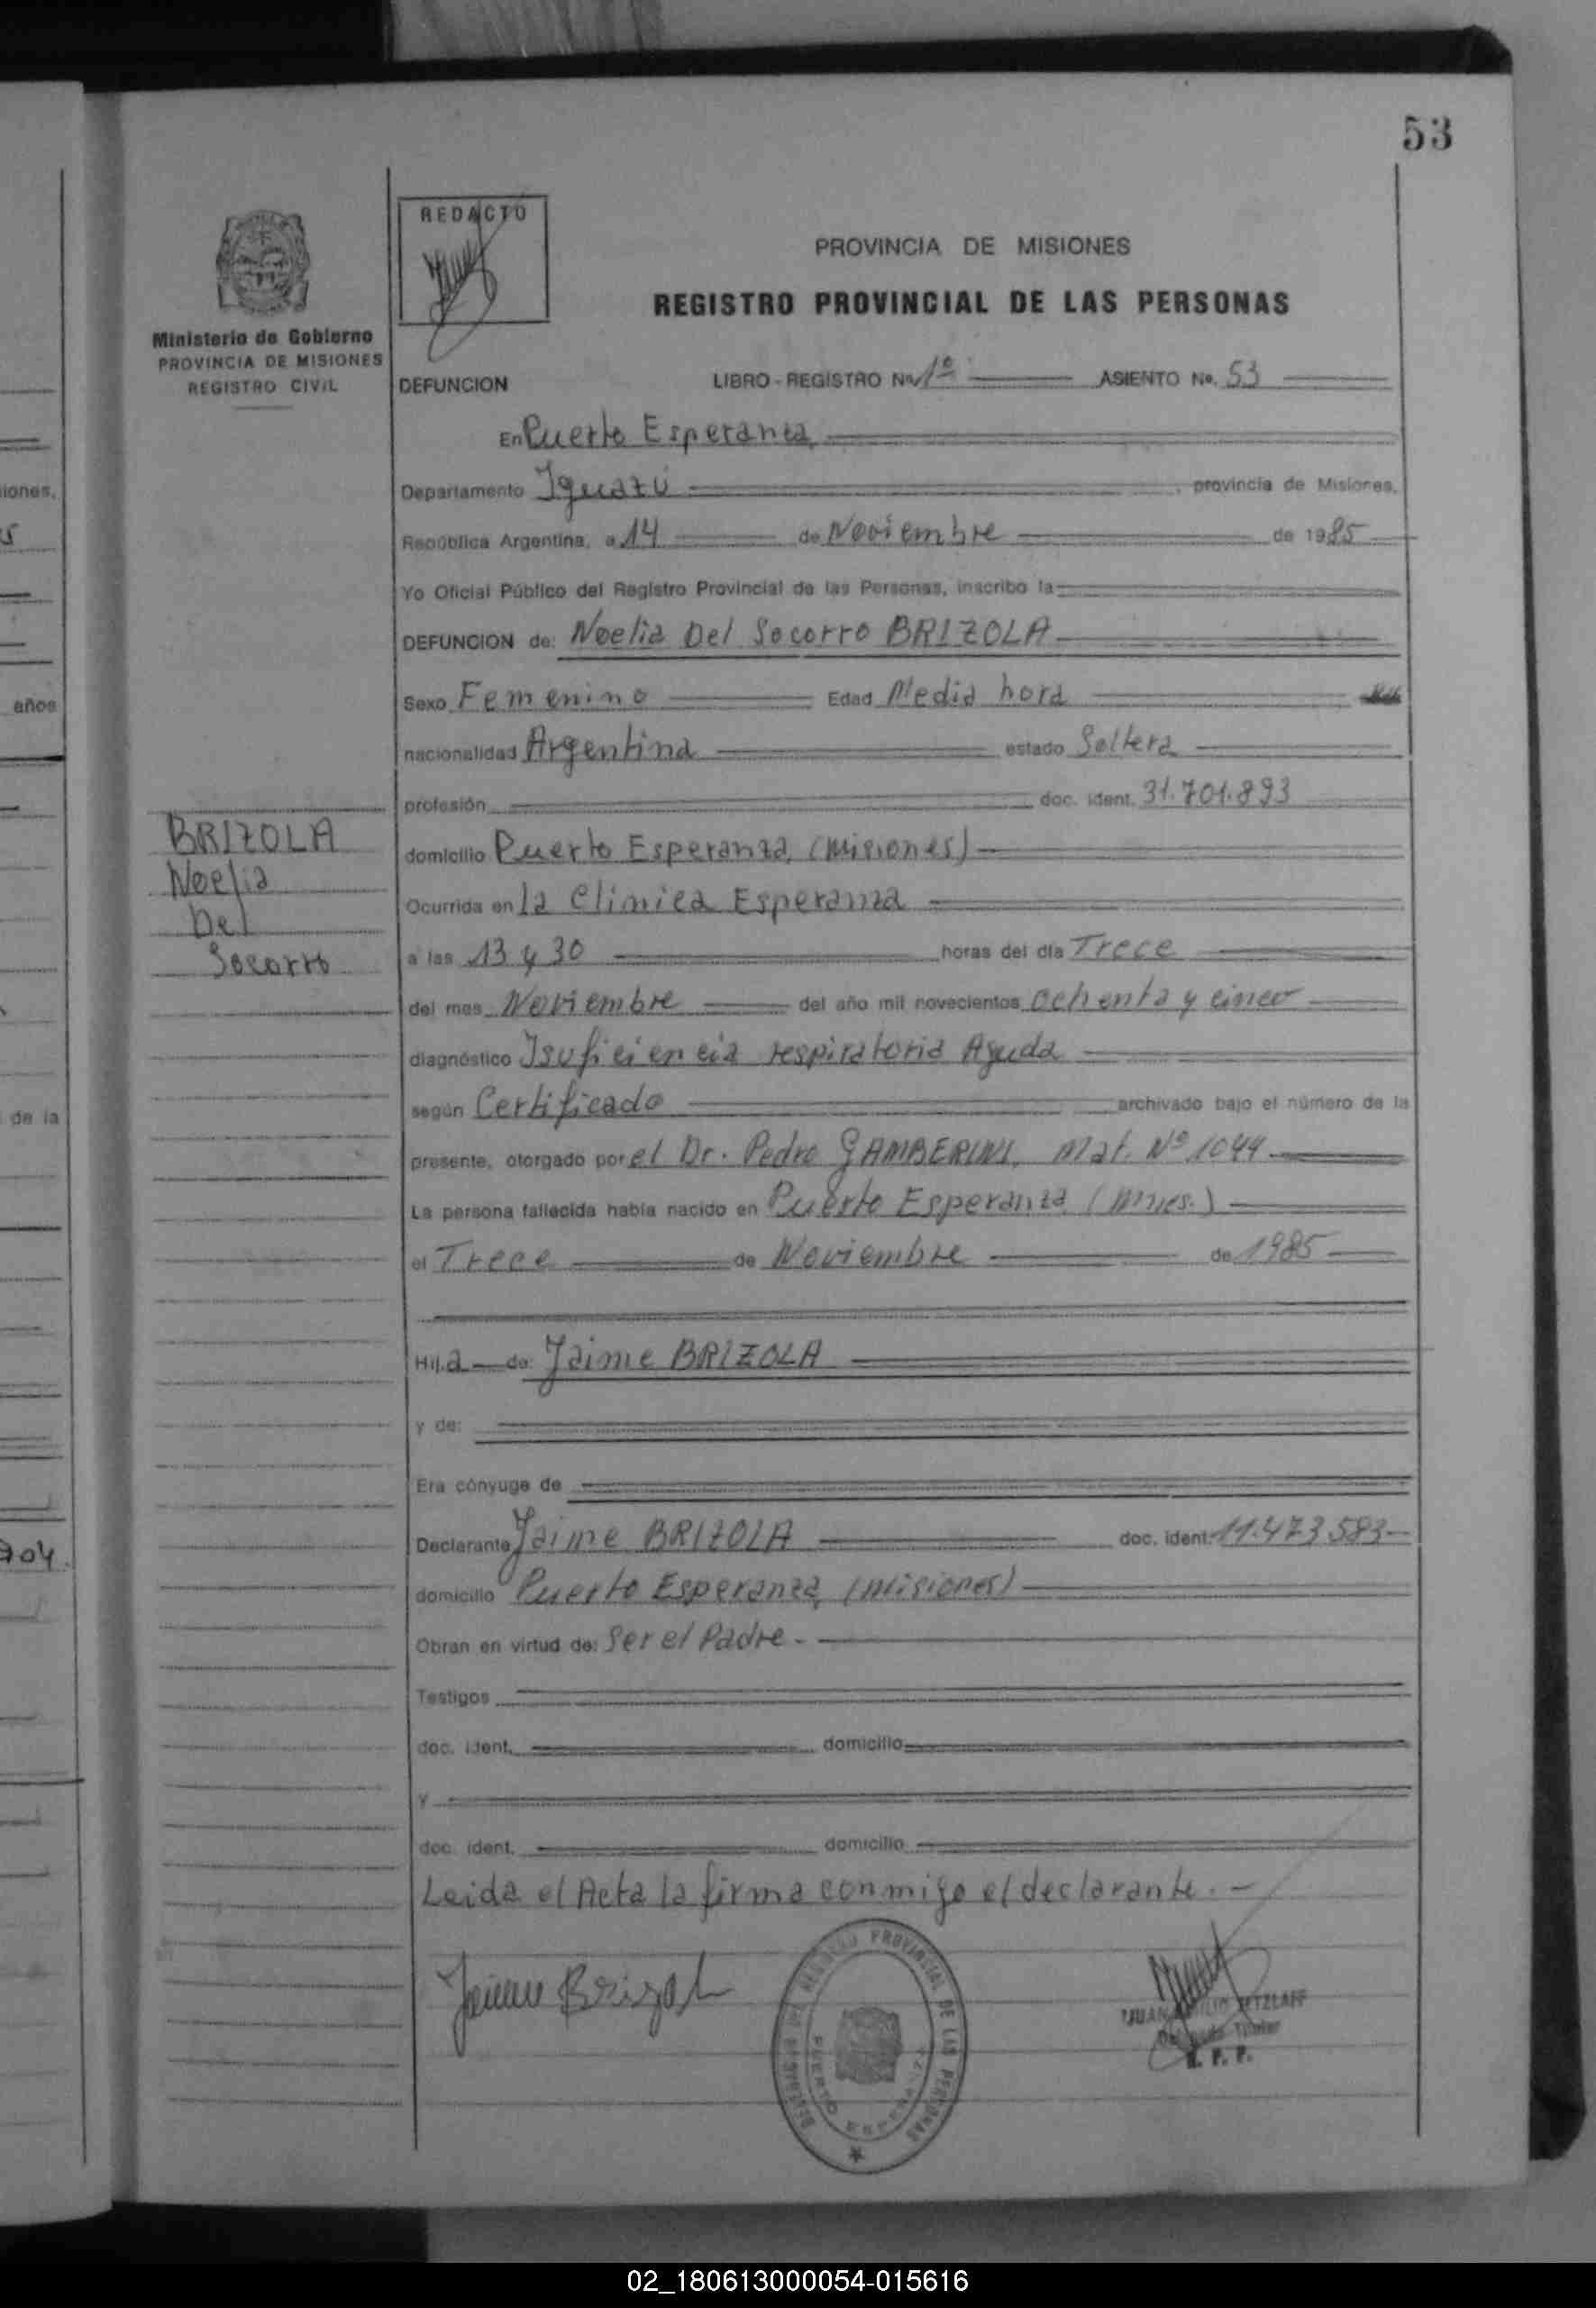 53
REDACTO
PROVINCIA DE MISIONES
REGISTRO PROVINCIAL DE LAS PERSONAS
Ministerio de Gobierno
PROVINCIA DE MISIONES
REGISTRO CIVIL
DEFUNCION LIBRO - REGISTRO Nº 1º ASIENTO Nº. 53
En Puerto Esperanza,
Departamento Iguazú, provincia de Misiones,
República Argentina, a 14 de Noviembre de 1985
Yo Oficial Público del Registro Provincial de las Personas, inscribo la
DEFUNCION de: Noelia Del Socorro BRIZOLA
Sexo Femenino Edad Media hora
nacionalidad Argentina estado Soltera
profesión doc. ident. 31.701.893
domicilio Puerto Esperanza, (Misiones)
Ocurrida en la Clinica Esperanza
a las 13 y 30 horas del día Trece
del mes Noviembre del año mil novecientos ochenta y cinco
diagnóstico Isuficiencia respiratoria Aguda
según Certificado archivado bajo el número de la
presente, otorgado por el Dr. Pedro GAMBERINI, Mat. Nº 1044
La persona fallecida había nacido en Puerto Esperanza (Mnes.)
el Trece de Noviembre de 1985
Hija de: Jaime BRIZOLA
y de:
Era cónyuge de
Declarante Jaime BRIZOLA doc. ident. 11.473.583
domicilio Puerto Esperanza, (Misiones)
Obran en virtud de: Ser el Padre.-
Testigos
doc. ident. domicilio
y
doc. ident. domicilio
Leida el Acta la firma conmigo el declarante.-
BRIZOLA
Noelia
Del
Socorro
Jaime Brizola
REGISTRO PROVINCIAL DE LAS PERSONAS
PUERTO ESPERANZA
JUAN
Delegado Titular
R. P. P.
iones,
5
años
de la
704.
02_180613000054-015616